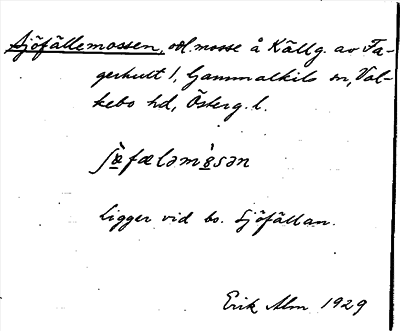 Sjöfällemossen, odl. mosse å Källg. av Fa-
gerhult 1, Gammalkils sn, Val-
kebo hd, Österg. l.
ʃö̀fæləmòsən
Ligger vid bo. Sjöfällan.
Erik Alm 1929